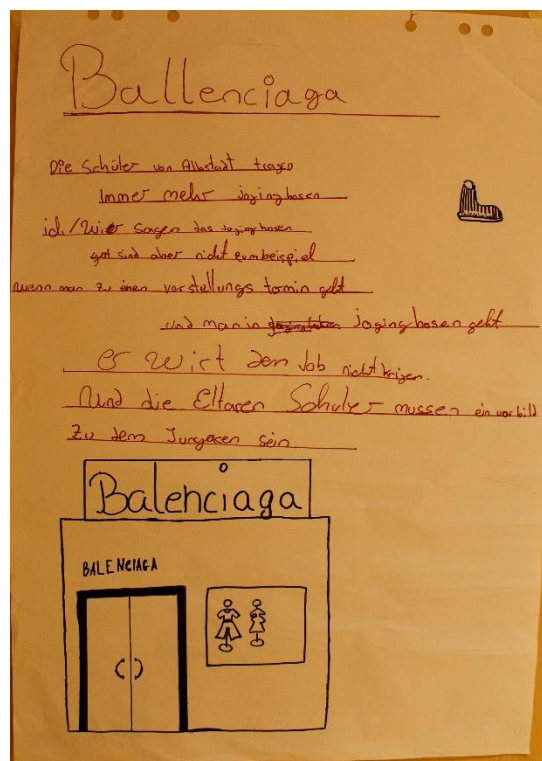 Ballenciaga
Die Schüler von Albstadt tragen
Immer mehr joginghosen
ich/Wir sagen das joginghosen
gut sind aber nicht zumbeispiel
wenn man zu einen vorstellungs termin geht
und man in joginghosen geht
er wirt den Job nicht krigen.
Und die Eltaren Schuler mussen ein vorbild
zu dem Jungeren sein
Balenciaga
BALENCIAGA